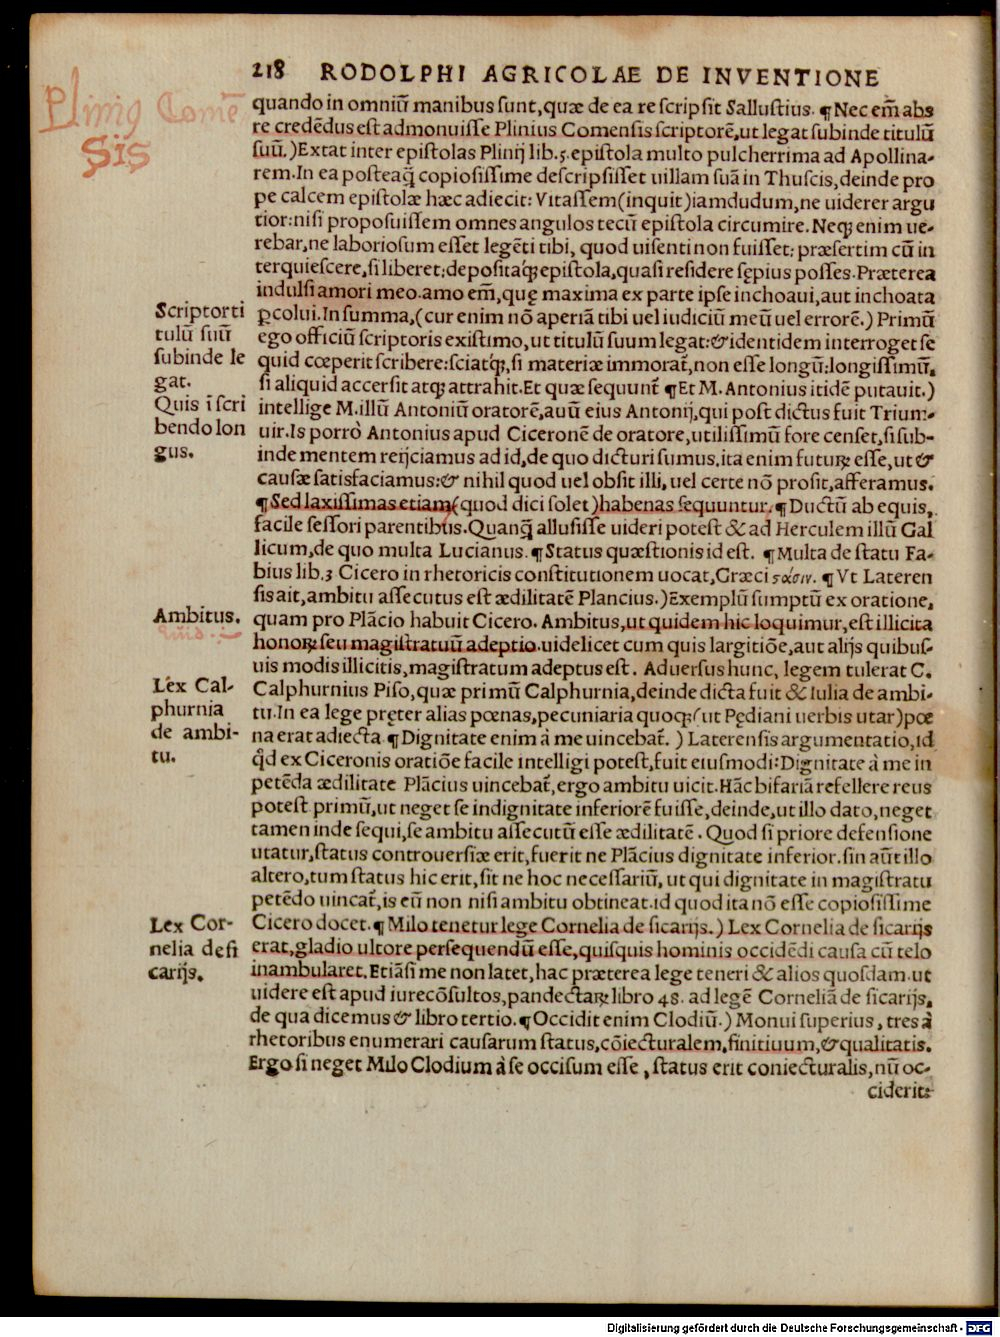 218 RODOLPHI AGRICOLAE DE INVENTIONE
Plinius Comē
sis
quando in omniū manibus sunt, quæ de ea re scripsit Sallustius. ¶ Nec em̄ abs
re credēdus est admonuisse Plinius Comensis scriptorē, ut legat subinde titulū
suū.) Extat inter epistolas Plinij lib.5. epistola multo pulcherrima ad Apollina-
rem. In ea posteaq̄ copiosissime descripsisset uillam suā in Thuscis, deinde pro
pe calcem epistolæ hæc adiecit: Vitassem (inquit) iamdudum, ne uiderer argu
tior: nisi proposuissem omnes angulos tecū epistola circumire. Neq; enim ue-
rebar, ne laboriosum esset legēti tibi, quod uisenti non fuisset: præsertim cū in
terquiescere, si liberet: depositáq; epistola, quasi residere sępius posses. Præterea
indulsi amori meo. amo em̄, quę maxima ex parte ipse inchoaui, aut inchoata
ꝑcolui. In summa, (cur enim nō aperiā tibi uel iudiciū meū uel errorē.) Primū
ego officiū scriptoris existimo, ut titulū suum legat: & identidem interroget se
quid cœperit scribere: sciatq́;, si materiæ immorat̃, non esse longū: longissimū,
si aliquid accersit atq; attrahit. Et quæ sequunt̃ ¶ Et M. Antonius itidē putauit.)
intellige M. illū Antoniū oratorē, auū eius Antonij, qui post dictus fuit Trium-
uir. Is porrò Antonius apud Ciceronē de oratore, utilissimū fore censet, si sub-
inde mentem reijciamus ad id, de quo dicturi sumus. ita enim futuꝝ esse, ut &
causæ satisfaciamus: & nihil quod uel obsit illi, uel certe nō prosit, afferamus.
¶ Sed laxissimas etiam (quod dici solet) habenas sequuntur. ¶ Ductū ab equis,
facile sessori parentibus. Quanq̄ allusisse uideri potest & ad Herculem illū Gal
licum, de quo multa Lucianus. ¶ Status quæstionis id est. ¶ Multa de statu Fa-
bius lib.3 Cicero in rhetoricis constitutionem uocat, Græci ϛάσιν. ¶ Vt Lateren
sis ait, ambitu assecutus est ædilitatē Plancius.) Exemplū sumptū ex oratione,
quam pro Plācio habuit Cicero. Ambitus, ut quidem hic loquimur, est illicita
honoꝝ seu magistratuū adeptio. uidelicet cum quis largitiōe, aut alijs quibus-
uis modis illicitis, magistratum adeptus est. Aduersus hunc, legem tulerat C.
Calphurnius Piso, quæ primū Calphurnia, deinde dicta fuit & Iulia de ambi-
tu. In ea lege pręter alias pœnas, pecuniaria quoq; (ut Pędiani uerbis utar) pœ
na erat adiecta. ¶ Dignitate enim à me uincebat̃. ) Laterensis argumentatio, id
q̄d ex Ciceronis oratiōe facile intelligi potest, fuit eiusmodi: Dignitate à me in
petēda ædilitate Plācius uincebat̃, ergo ambitu uicit. Hāc bifariā refellere reus
potest primū, ut neget se in dignitate inferiorē fuisse, deinde, ut illo dato, neget
tamen inde sequi, se ambitu assecutū esse ædilitatē. Quod si priore defensione
utatur, status controuersiæ erit, fuerit ne Plācius dignitate inferior. sin aūt illo
altero, tum status hic erit, sit ne hoc necessariū, ut qui dignitate in magistratu
petēdo uincat̃, is eū non nisi ambitu obtineat. id quod ita nō esse copiosissime
Cicero docet. ¶ Milo tenetur lege Cornelia de sicarijs.) Lex Cornelia de sicarijs
erat, gladio ultore persequendū esse, quisquis hominis occidēdi causa cū telo
inambularet. Etiāsi me non latet, hac præterea lege teneri & alios quosdam. ut
uidere est apud iurecōsultos, pandectaꝝ libro 48. ad legē Corneliā de sicarijs,
de qua dicemus & libro tertio. ¶ Occidit enim Clodiū.) Monui superius, tres à
rhetoribus enumerari causarum status, cōiecturalem, finitiuum, & qualitatis.
Ergo si neget Milo Clodium à se occisum esse, status erit coniecturalis, nū oc-
ciderit:
Scriptor ti
tulū suū
subinde le
gat.
Quis ī scri
bendo lon
gus.
Ambitus.
quid:
Lex Cal-
phurnia
de ambi-
tu.
Lex Cor-
nelia de si
carijs.
Digitalisierung gefördert durch die Deutsche Forschungsgemeinschaft - DFG